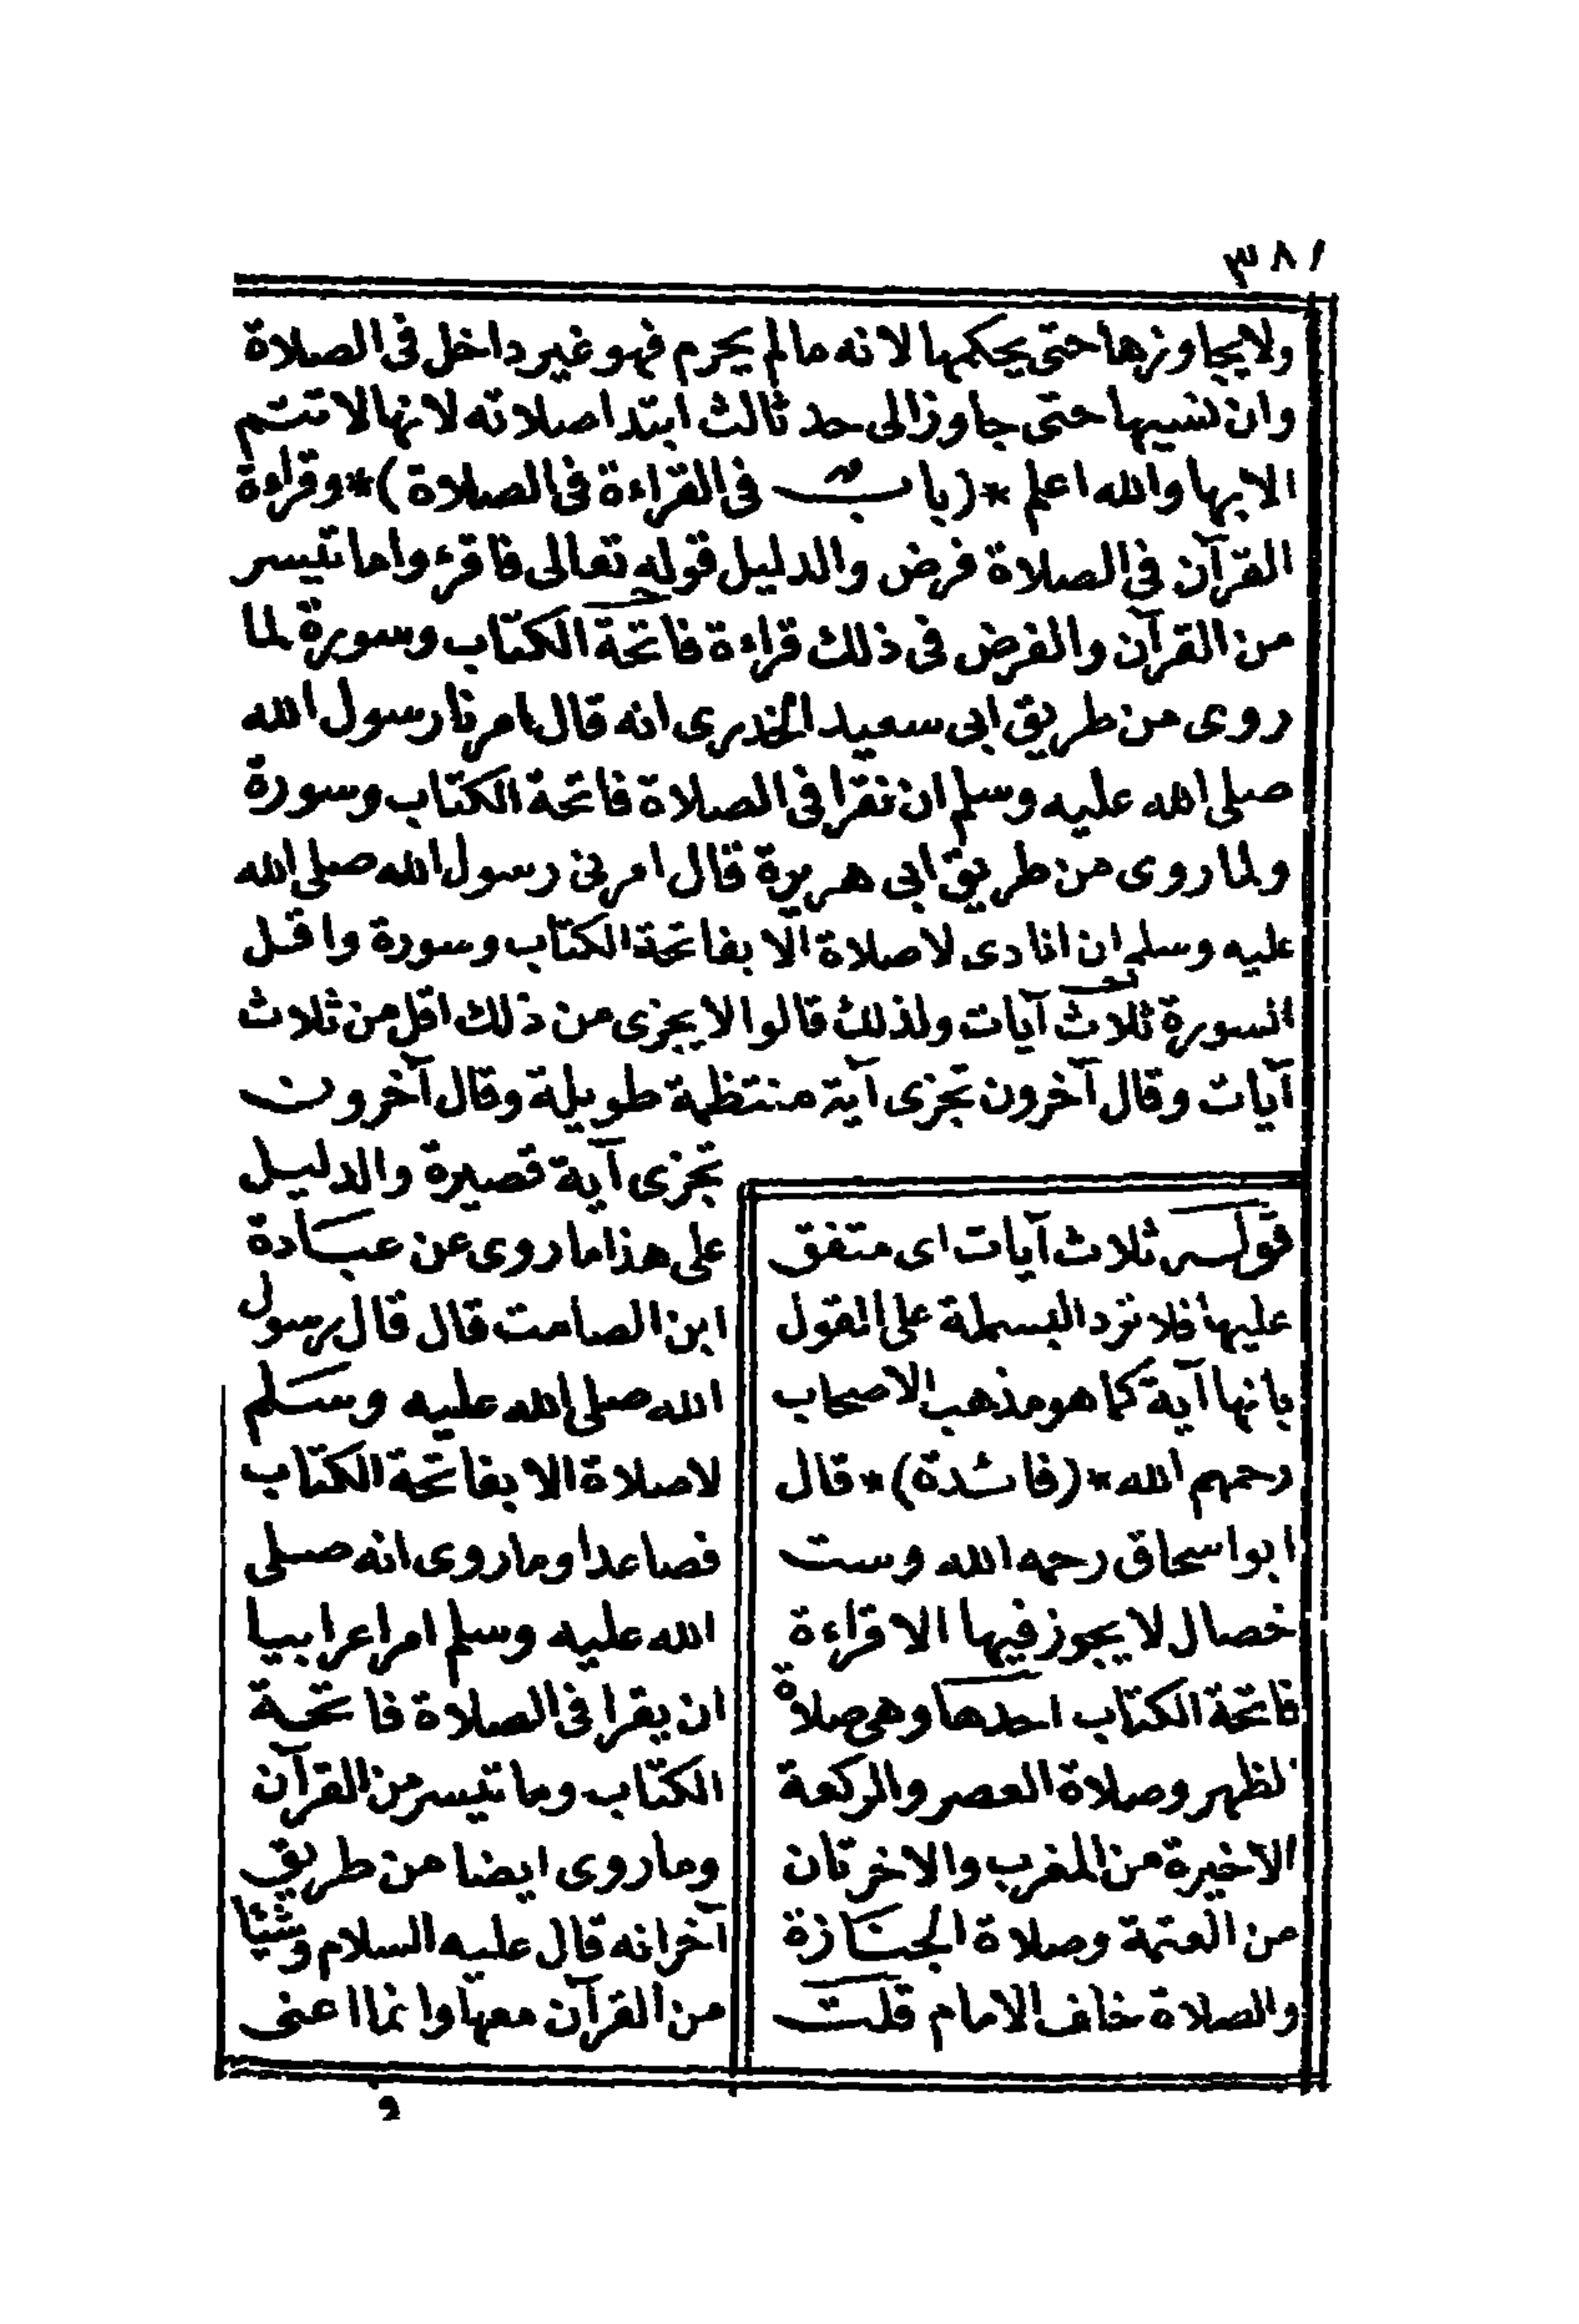 ٣٨١
ولا يجاوزها حتى يحكمها لانه ما لم يحرم فهو غير داخل فى الصلاة
وان نسيها حتى جاوز الى حد ثالث ابتدا صلاته لانها لا تتم
الا بها والله اعلم *(باب فى القراءة فى الصلاة)* وقراءة
القرآن فى الصلاة فرض والدليل قوله تعالى فاقرءوا ما تيسر
من القرآن والفرض فى ذلك قراءة فاتحة الكتاب وسورة لما
روى من طريق ابى سعيد الخدرى انه قال امرنا رسول الله
صلى الله عليه وسلم ان نقرا فى الصلاة فاتحة الكتاب وسورة
ولما روى من طريق ابى هريرة قال امرنى رسول الله صلى الله
عليه وسلم ان انادى لا صلاة الّا بفاتحة الكتاب وسورة واقل
السورة ثلاث آيات ولذلك قالوا لا يجزى من ذلك اقل من ثلاث
آيات وقال آخرون تجزى آية منتظمة طويلة وقال آخرون
تجزى آية قصيرة والدليل
على هذا ما روى عن عبادة
ابن الصامت قال قال رسول
الله صلى الله عليه وسلم
لا صلاة الا بفاتحة الكتاب
فصاعدا وما روى انه صلى
الله عليه وسلم امر اعرابيا
ان يقرا فى الصلاة فاتحة
الكتاب وما تيسر من القرآن
وما روى ايضا من طريق
آخر انه قال عليه السلام وشيئا
من القرآن معها وانما اعنى
قوله ثلاث آيات اى متفق
عليها فلا ترد البسملة على القول
بانها آية كما هو مذهب الاصحاب
رحمهم الله *(فائدة)* قال
ابو اسحاق رحمه الله وست
خصال لا يجوز فيها الا قراءة
فاتحة الكتاب احدها وهى صلاة
لظهر وصلاة العصر والركعة
الاخيرة من المغرب والاخرتان
من العتمة وصلاة الجنازة
والصلاة خلف الامام قلت
و